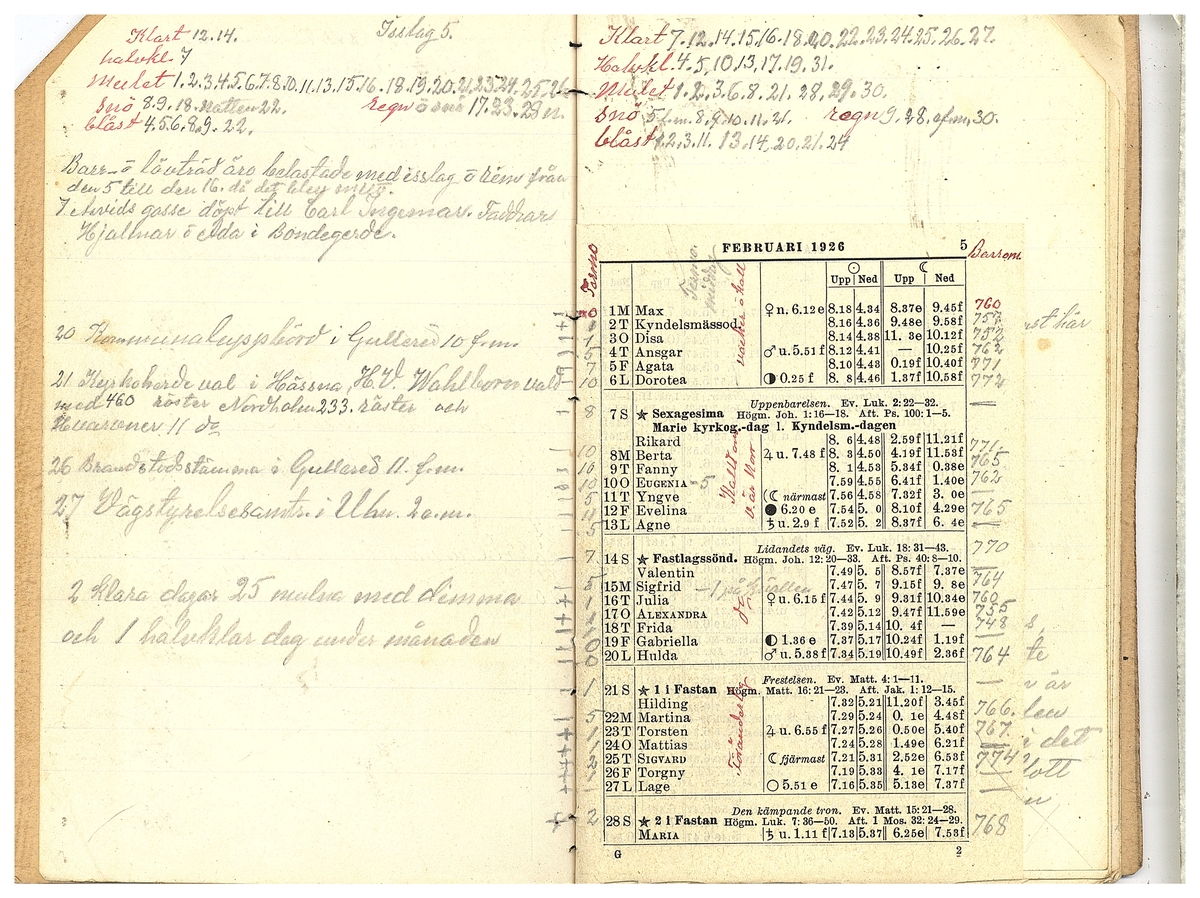 Klart 12.14. Isslag 5.
halvkl 7
Mulet 1.2.3.4.5.6.7.8.10.11.13.15.16. 18.19.20.21.23.24.25.26
Snö 8.9.18. Natten 22. regn ö snö 17.23.28 n.
blåst 4.5.6.8.9.22.
Barr- ö lövträd äro belastade med isslag ö rem från
den 5 till den 16. då det blev
7 Arvids gosse döpt till Carl Ingemar. Faddrar
Hjallmar ö Ada i Bondegerde.
20 Kommunaluppbörd i Gullered 10 f.m.
21 Kyrkoherde val i Hässna, H.V. Wahlborn vald
med 460 röster Nordholm 233. röster och
11 do
26 Brandstodsstämma i Gullered 11. f.m.
27 Vägstyrelsesamtr. i Ulm. 2 e.m.
2 klara dagar 25 mulna med dimma
och 1 halvklar dag under månaden
Klart 7.12.14.15.16.18.20.22.23.24.25.26.27.
Halvkl 4.5.10.13.17.19.31.
Mulet 1.2.3.6.8.21.28.29.30.
Snö 5 f.m. 8.9.10.11.21. regn 9.28. ef.m. 30.
blåst 1.2.3.11. 13.14.20.21.24
FEBRUARI 1926 5 Barrom.
Termo
Upp Ned Upp Ned
1 M Max ♀ n. 6.12 e 8.18 4.34 8.37e 9.45f 760
2 T Kyndelsmässod. 8.16 4.36 9.48e 9.58f 757
3 O Disa 8.14 4.38 11. 3e 10.12f 752
4 T Ansgar ♂ u. 5.51 f 8.12 4.41 — 10.25f 762
5 F Agata 8.10 4.43 0.19f 10.40f 771
6 L Dorotea ◑ 0.25 f 8. 8 4.46 1.37f 10.58f 772
Uppenbarelsen. Ev. Luk. 2: 22—32.
7 S ★ Sexagesima Högm. Joh. 1: 16—18. Aft. Ps. 100: 1—5.
Marie kyrkog.-dag l. Kyndelsm.-dagen
Rikard 8. 6 4.48 2.59f 11.21f
8 M Berta ♃ u. 7.48 f 8. 3 4.50 4.19f 11.53f 771.
9 T Fanny 8. 1 4.53 5.34f 0.38e 765
10 O EUGENIA -5 7.59 4.55 6.41f 1.40e 762
11 T Yngve ☾ närmast 7.56 4.58 7.32f 3. 0e
12 F Evelina ● 6.20 e 7.54 5. 0 8.10f 4.29e 765
13 L Agne ♄ u. 2.9 f 7.52 5. 2 8.37f 6. 4e
Lidandets väg. Ev. Luk. 18: 31—43. 770
14 S ★ Fastlagssönd. Högm. Joh. 12: 20—33. Aft. Ps. 40: 8—10.
Valentin 7.49 5. 5 8.57f 7.37e
15 M Sigfrid 7.47 5. 7 9.15f 9. 8e 764
16 T Julia ♀ u. 6.15 f 7.44 5. 9 9.31f 10.34e 760
17 O ALEXANDRA 7.42 5.12 9.47f 11.59e 755
18 T Frida 7.39 5.14 10. 4f — 748
19 F Gabriella ◐ 1.36 e 7.37 5.17 10.24f 1.19f
20 L Hulda ♂ u. 5.38 f 7.34 5.19 10.49f 2.36f 764
Frestelsen. Ev. Matt. 4: 1—11.
21 S ★ 1 i Fastan Högm. Matt. 16: 21—23. Aft. Jak. 1: 12—15.
Hilding 7.32 5.21 11.20f 3.45f
22 M Martina 7.29 5.24 0. 1e 4.48f 766.
23 T Torsten ♃ u. 6.55 f 7.27 5.26 0.50e 5.40f 767.
24 O Mattias 7.24 5.28 1.49e 6.21f
25 T SIGVARD ☾ fjärmast 7.21 5.31 2.52e 6.53f 774
26 F Torgny 7.19 5.33 4. 1e 7.17f
27 L Lage ○ 5.51 e 7.16 5.35 5.13e 7.37f
Den kämpande tron. Ev. Matt. 15: 21—28.
28 S ★ 2 i Fastan Högm. Luk. 7: 36—50. Aft. 1 Mos. 32: 24—29. 768
MARIA ♄ u. 1.11 f 7.13 5.37 6.25e 7.53f
G 2
Föränderlig